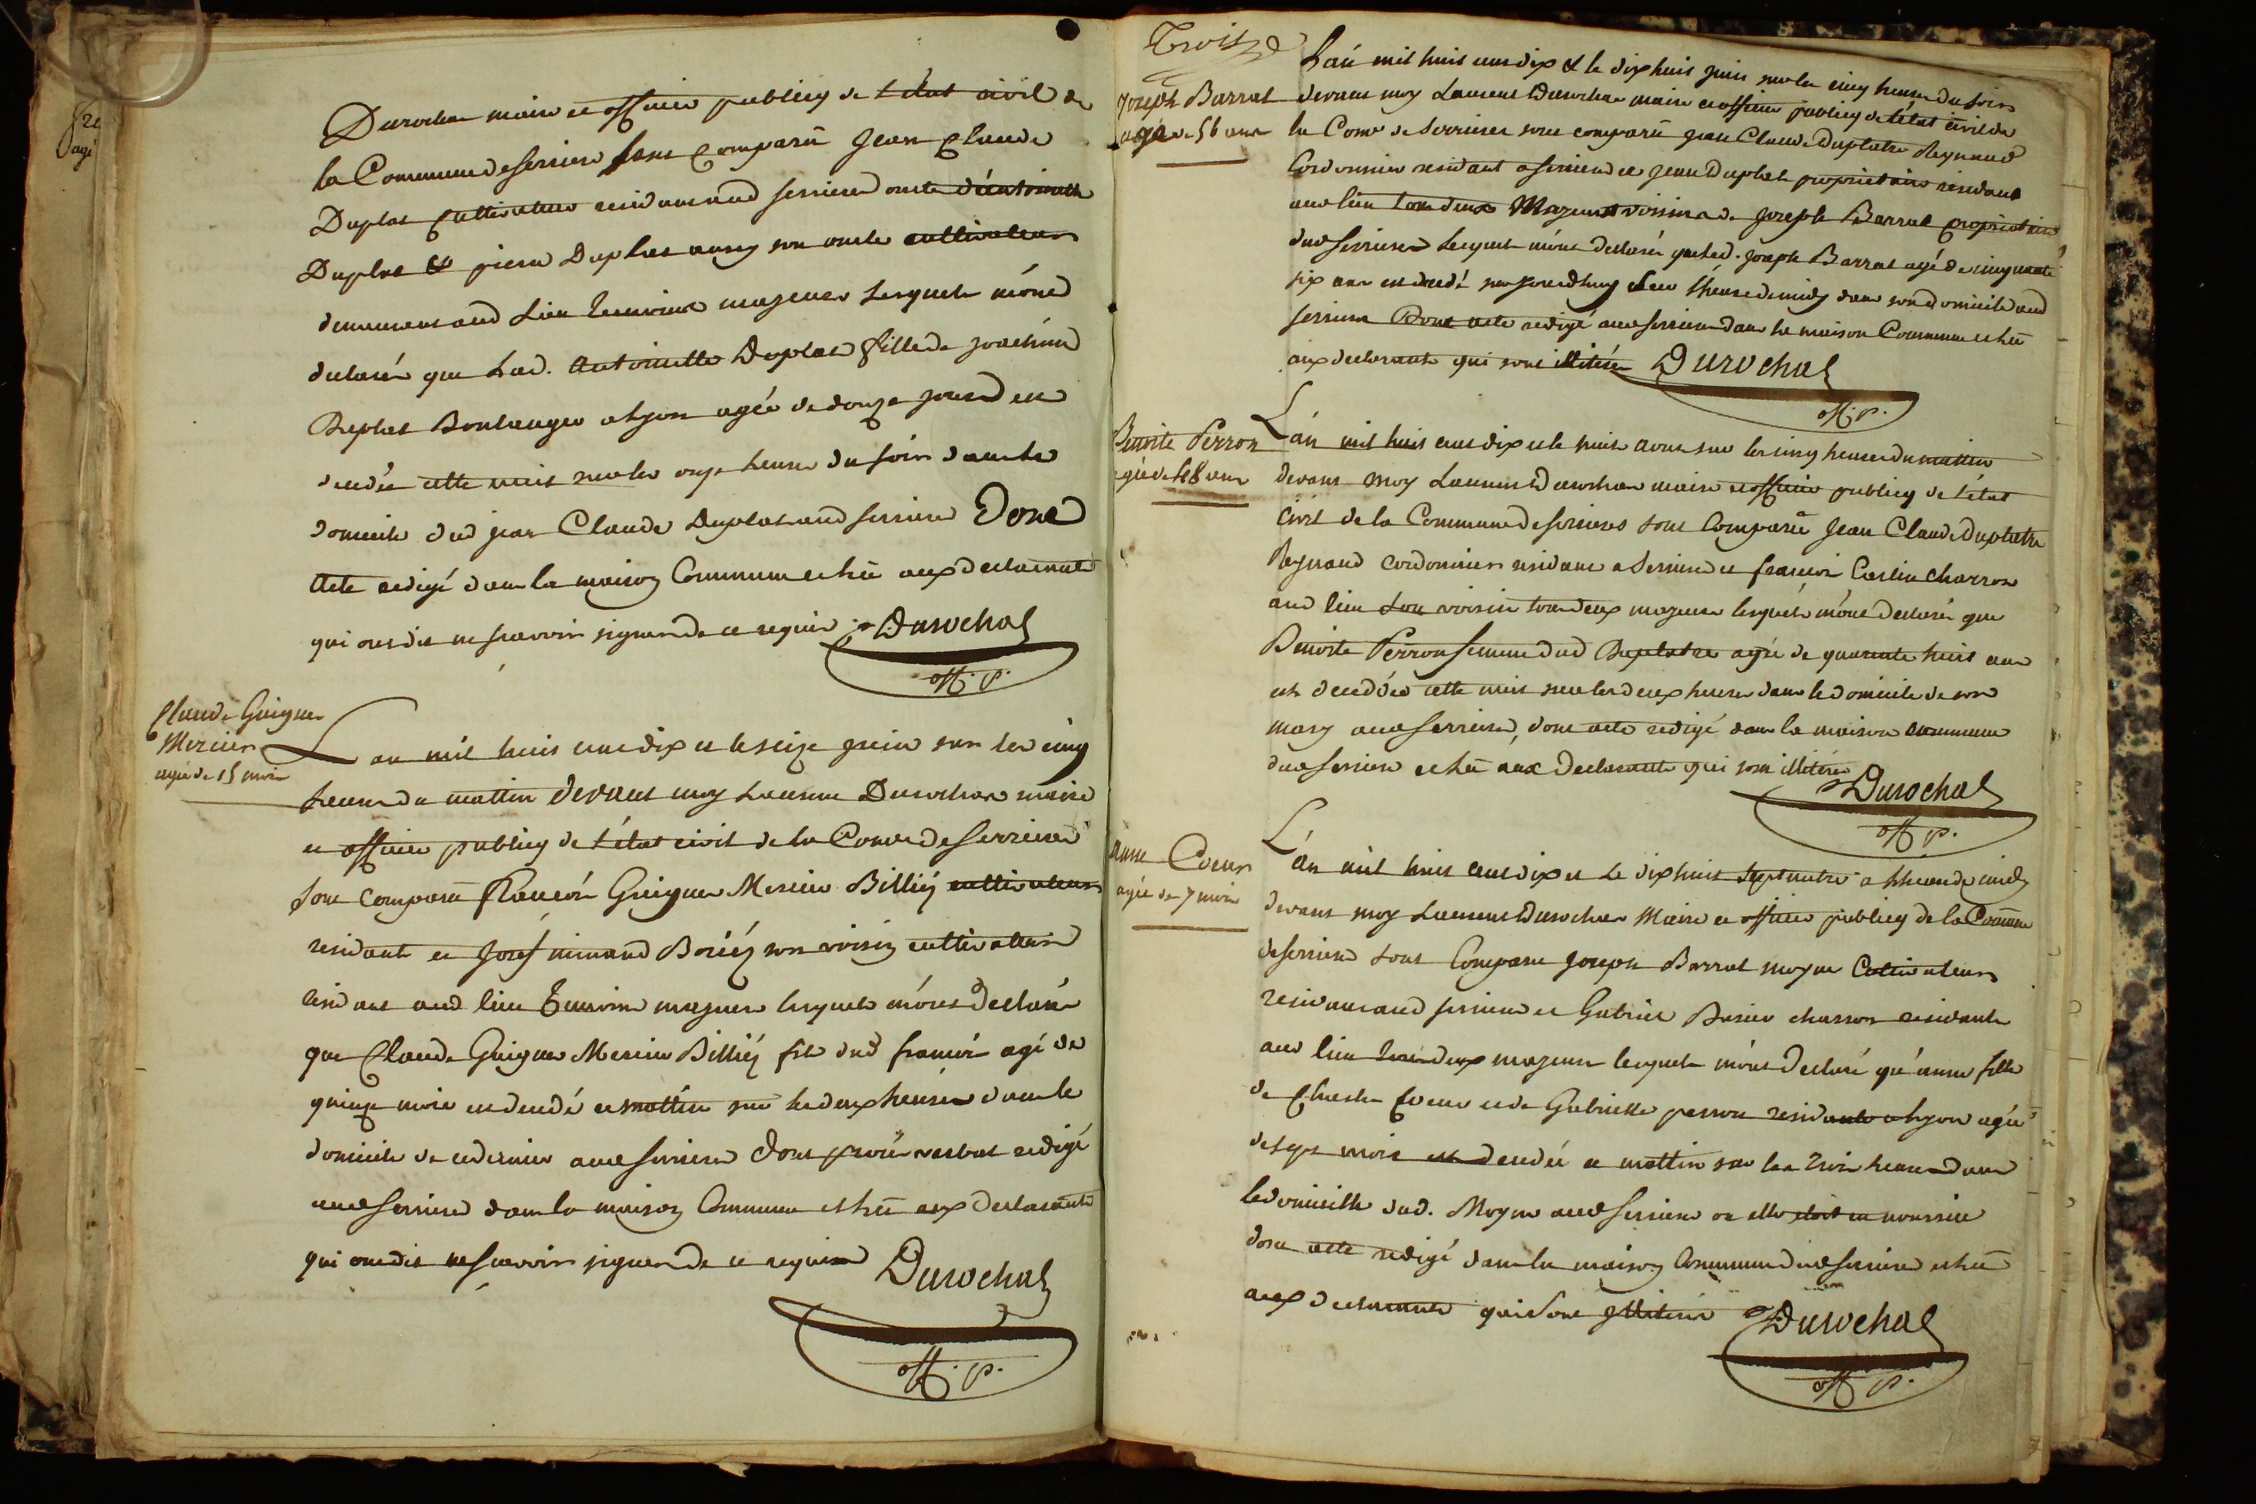 Durochat maire et officier publicq de l'état civil de
la Commune de Serriere sont comparû Jean Claude
Duplat cultivateur residant aud Serriere oncle d'antoinette
Duplat & piere Duplat aussy son oncle cultivateur
demeurant aud Lieu majeurs Lesquels m'ont
declaré que Lad. Antoinette Duplat fille de joachim
Duplat Boulanger a Lyon agée de douze jours est
decedée cette nuit sur les onze heures du soir dans le
domicile dud jean Claude Duplat aud Serriere Dont
Acte redigé dans la maison Commune et lu aux declarants
qui ont dit ne scavoir signer de ce requis Durochat
off. p.
Claude Guigue
Mercier
agé de 15 mois
L'an mil huit cent dix et le seize juin sur les cinq
heures du mattin devant moy Laurent Durochat maire
et officier publicq de l'état civil de la Come de Serriere
sont comparû francois Guigue Mercier Billiéz cultivateur
residant et Josef mimand son voisin cultivateur
residant aud lieu majeurs lesquels m'ont declaré
que Claude Guigue Mercier Billiéz fils dud francois agé de
quinze mois est decedé ce mattin sur les deux heures dans le
domicile de ce dernier aud Serriere dont procés verbal redigé
aud Serriere dans la maison Commune et lû aux declarants
qui ont dit ne scavoir signer de ce requis Durochat
off. p.
Joseph Barrat
agé de 56 ans
L'an mil huit cent dix & le dix huit juin sur les cinq heures du soir
devant moy Laurent Durochat maire et officier publicq de l'état civil de
la Come de Serrieres sont comparû jean Claude Duplatre Reynaud
Cordonnier residant a Serriere et jean Duplat proprietaire residant
aud lieu tous deux Majeurs voisins de joseph Barrat proprietaire
dud Serrieres Lesquels m'ont declaré que led. joseph Barrat agé de cinquante
six ans est decedé ce jourdhuy a l'heure de midy dans son domicile aud
Serriere Dont acte redigé aud Serriere dans la maison Commune et lû
aux declarants qui sont illiterés Durochat
off. p.
Benoite Perron
agée de 48 ans
L'an mil huit cent dix et le huit aout sur les cinq heures du mattin
devant moy Laurent Durochat maire et officier publicq de l'état
civil de la Commune de Serrieres sont Comparû Jean Claude Duplatre
Reynaud cordonnier residant a Serriere et francois Carlin charron
aud lieu son voisin tous deux majeurs lesquels m'ont declaré que
Benoite Perron femme dud Duplatre agée de quarante huit ans
est decedée cette nuit sur les deux heures dans le domicile de son
mary aud Serriere, dont acte redigé dans la maison commune
dud Serriere et lû aux declarants qui sont illiterés
Durochat
off p.
anne Coeur
agée de 7 mois
L'an mil huit cent dix et le dix huit septembre a l'heure de midy
devant moy Laurent Durochat Maire et officier publicq de la Commune
de Serriere sont Comparu joseph Barrat moyne Cultivateur
residant aud Serriere et Gabriel charron residant
aud lieu tous deux majeurs lesquels m'ont declaré qu'anne fille
de Charle Coeur et de Gabrielle perron residants a Lyon agée
de sept mois est decedée ce mattin sur les trois heures dans
le domicille dud. Moyne aud Serriere ou elle etoit en nourrice
dont acte redigé dans la maison Commune dud Serriere et lû
aux declarants qui sont illiterés Durochat
off p.